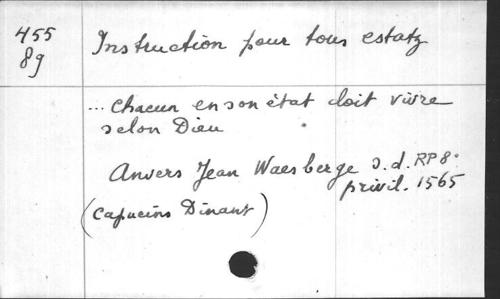 455
89
Instruction pour tous estatz
... Chacun en son état doit vivre
selon Dieu
Anvers Jean Waesberge s.d. RP 8°
privil. 1565
(Capucins Dinant)